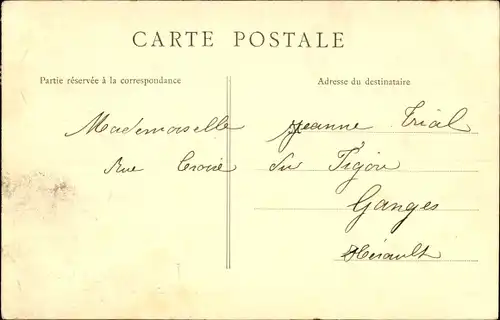 CARTE POSTALE
Partie réservée à la correspondance
Adresse du destinataire
Mademoiselle Jeanne Trial
Rue Croix du
Ganges
Hérault